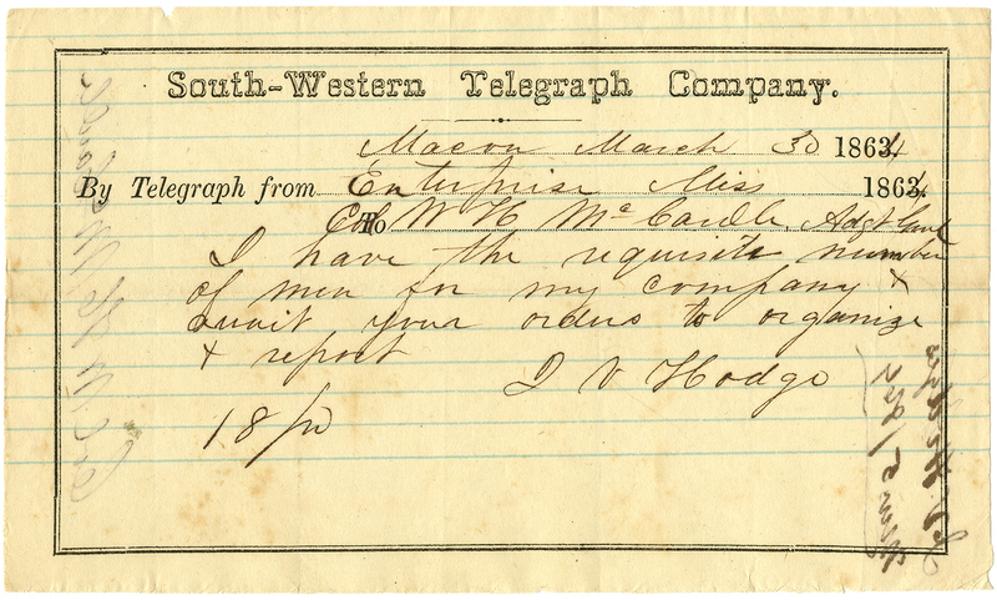 South-Western Telegraph Company.
Macon March 30 1864
By Telegraph from Enterprise Miss 1864
Col To W H McCardle, Adgt Genl
I have the requisite number
of men for my company &
await your orders to organize
& report
J V Hodge
18 pd